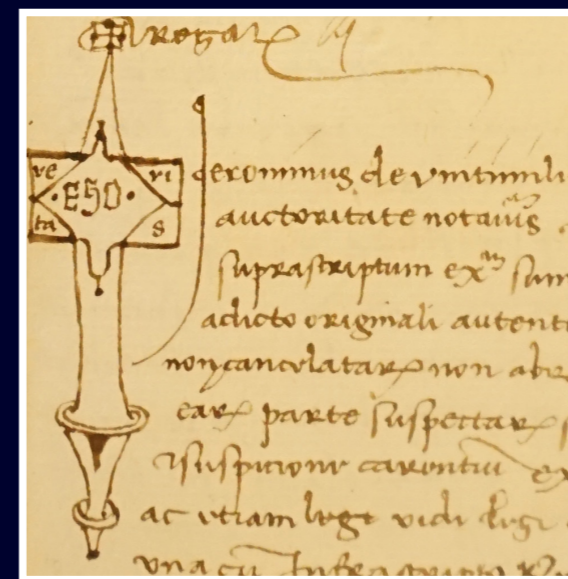 rogar
ve ri
EGO
ta s
Jeronimus de vintimili
auctoritate notarius
suprascriptum exm sum
adicto originali autent
non cancelatar non abr
ear parte suspectar s
suspicione carentiu ex
ac etiam legi vidi legi
una cu Infrascripto